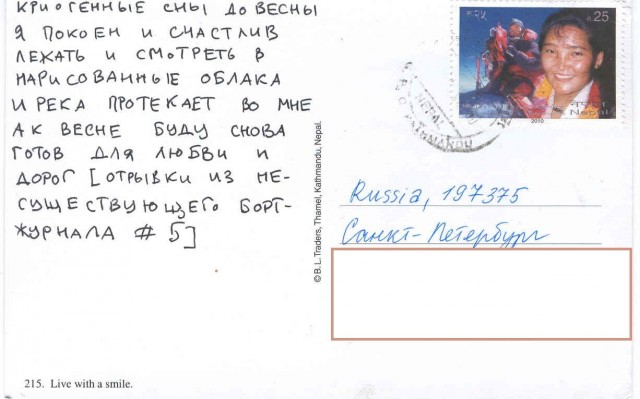 КРИОГЕННЫЕ СНЫ ДО ВЕСНЫ
Я ПОКОЕН И СЧАСТЛИВ
ЛЕЖАТЬ И СМОТРЕТЬ В
НАРИСОВАННЫЕ ОБЛАКА
И РЕКА ПРОТЕКАЕТ ВО МНЕ
А К ВЕСНЕ БУДУ СНОВА
ГОТОВ ДЛЯ ЛЮБВИ И
ДОРОГ [ОТРЫВКИ ИЗ НЕ-
СУЩЕСТВУЮЩЕГО БОРТ-
ЖУРНАЛА # 5]
215. Live with a smile.
© B. L. Traders, Thamel, Kathmandu, Nepal.
रू२५
R.25
2010
नेपाल
Nepal
NEPAL
KATHMANDU
Russia, 197375
Санкт-Петербург